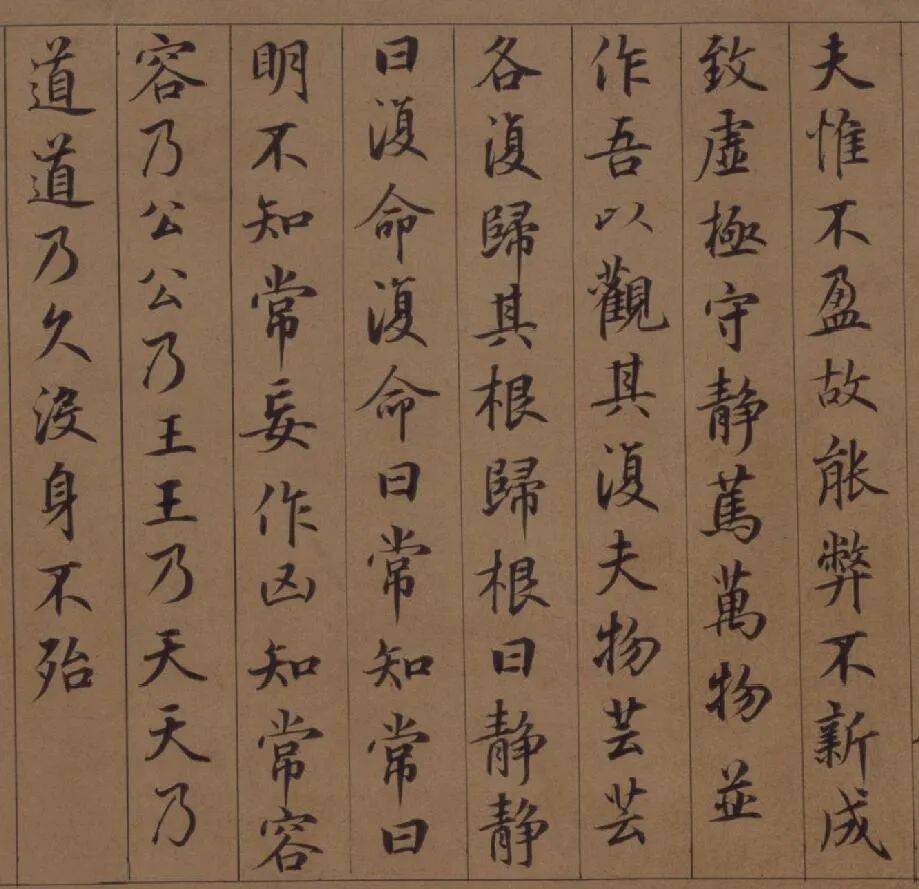 夫惟不盈故能弊不新成
致虛極守静篤萬物並
作吾以觀其復夫物芸芸
各復歸其根歸根曰静静
曰復命復命曰常知常曰
明不知常妄作凶知常容
容乃公公乃王王乃天天乃
道道乃久没身不殆